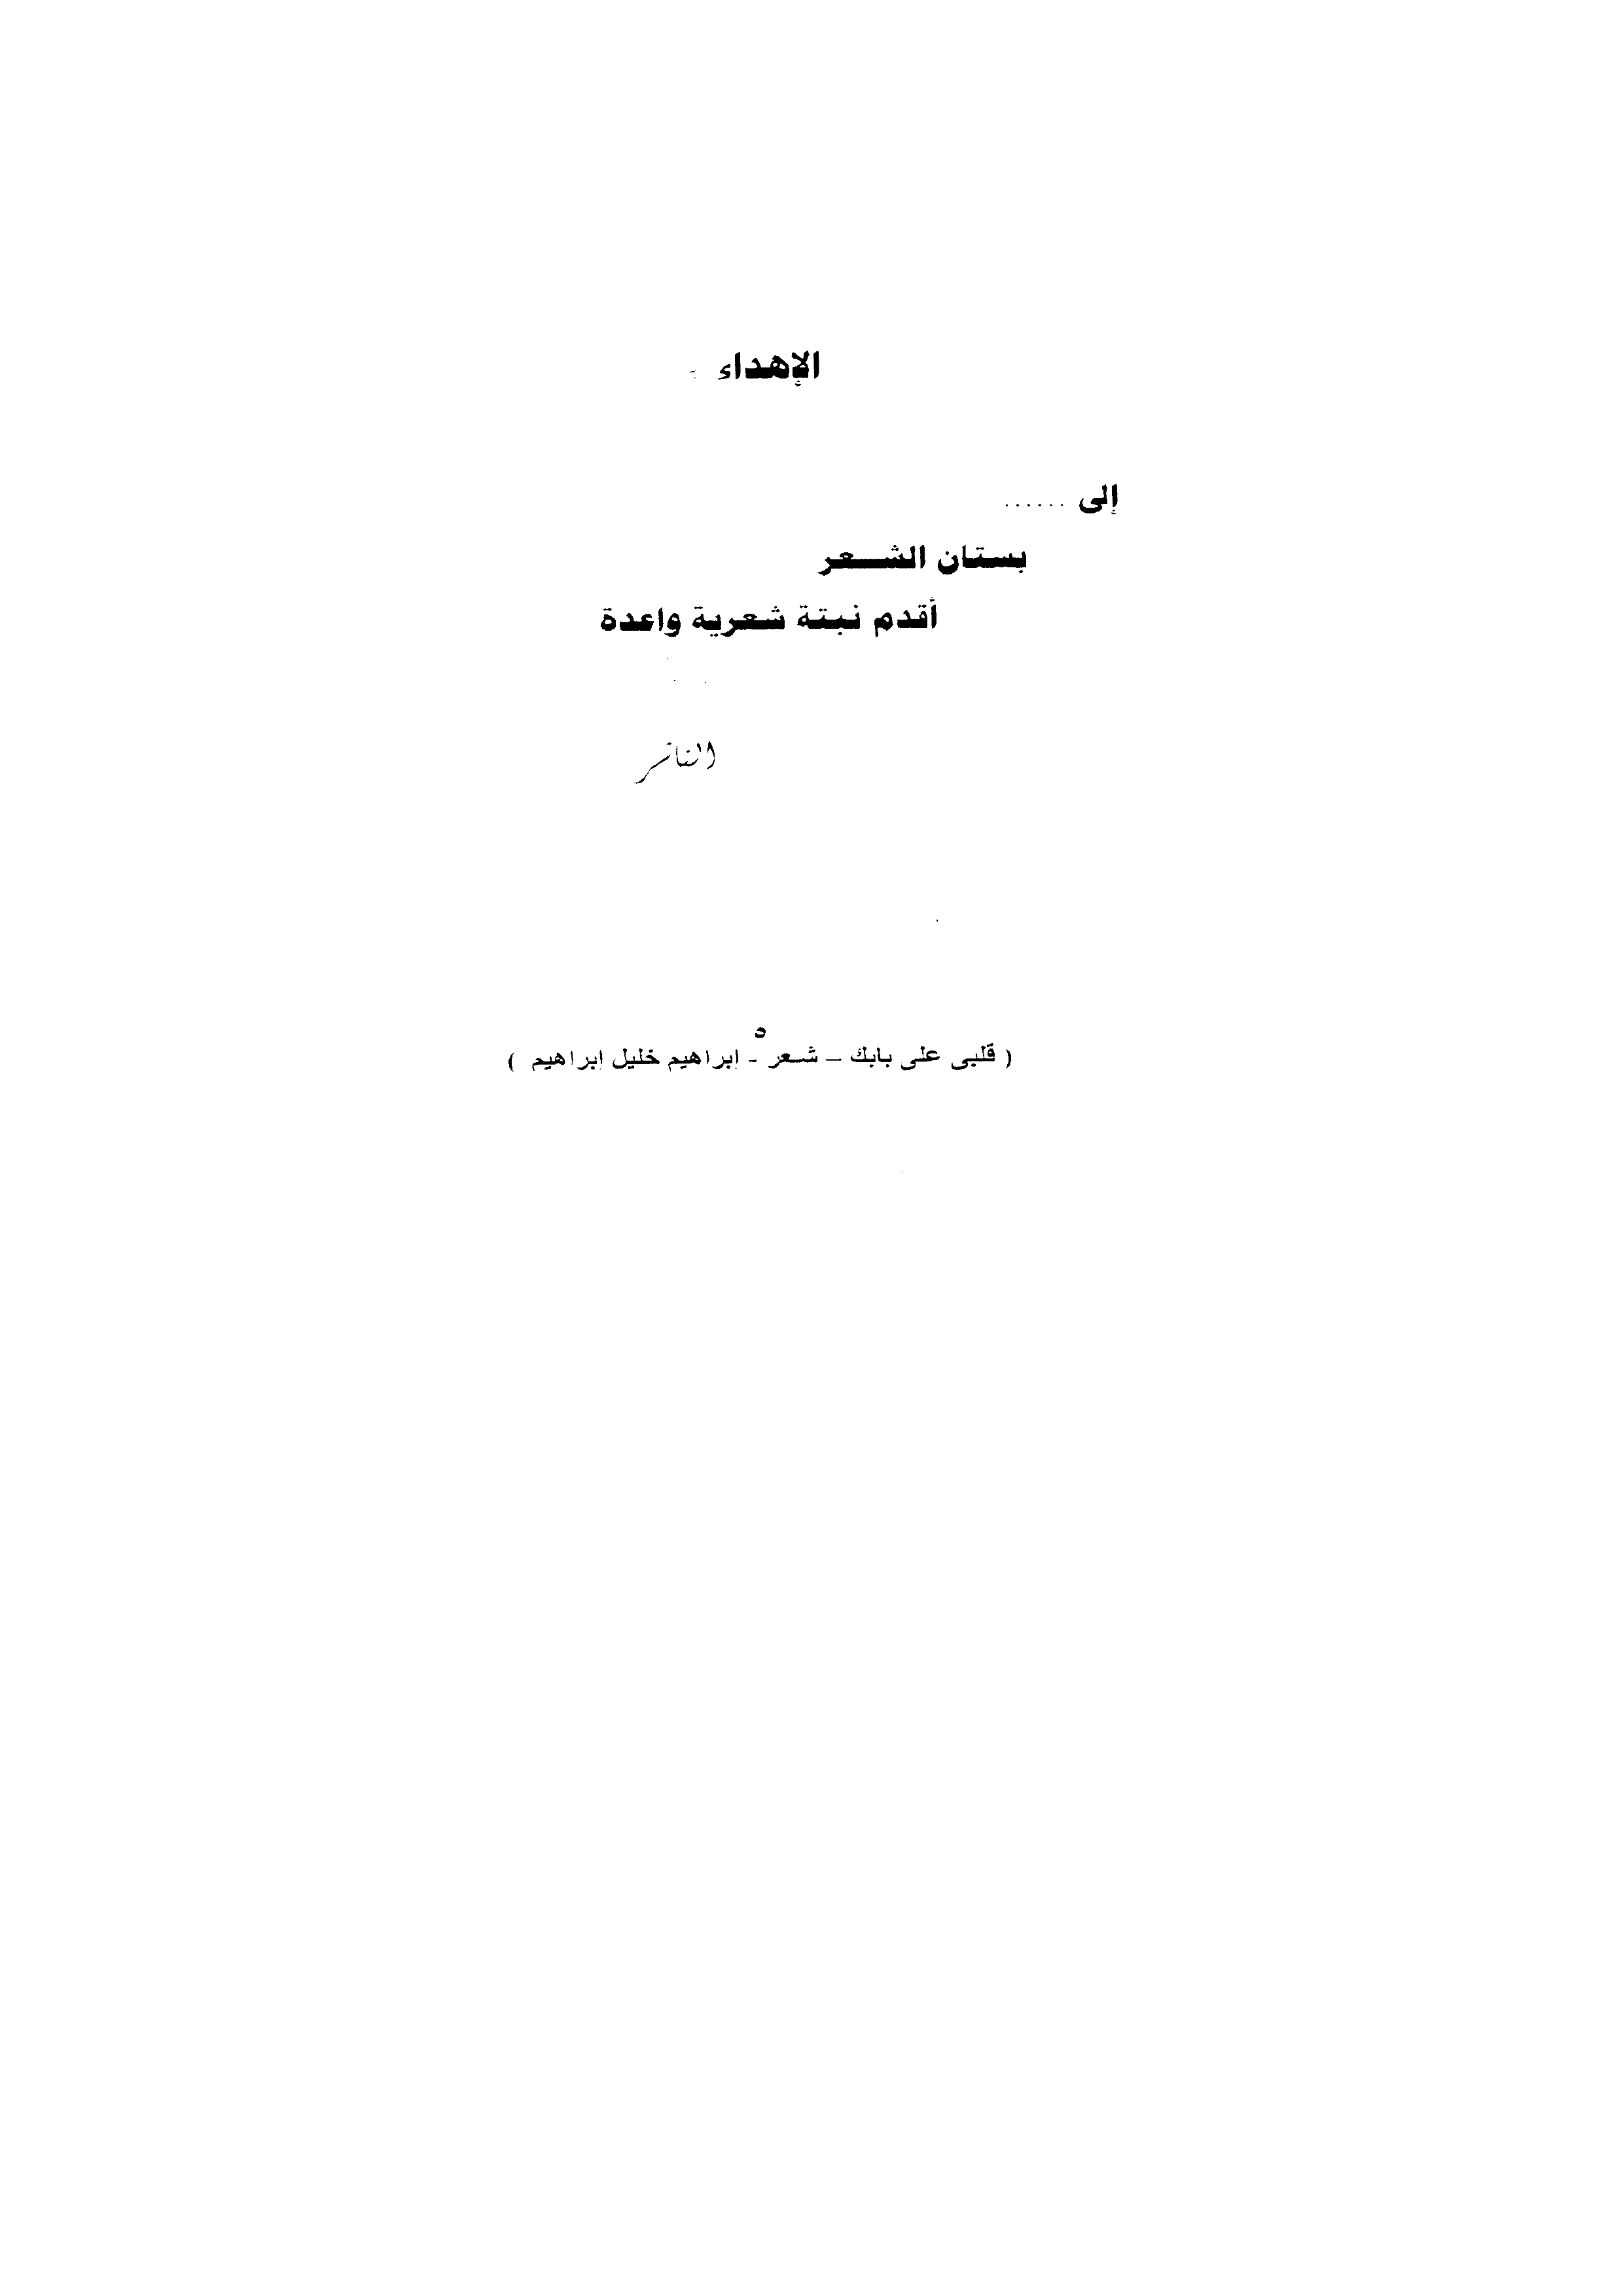 الإهداء
إلى ......
بستان الشعر
أقدم نبتة شعرية واعدة
الناشر
٥
( قلبى على بابك – شعر - إبراهيم خليل إبراهيم )